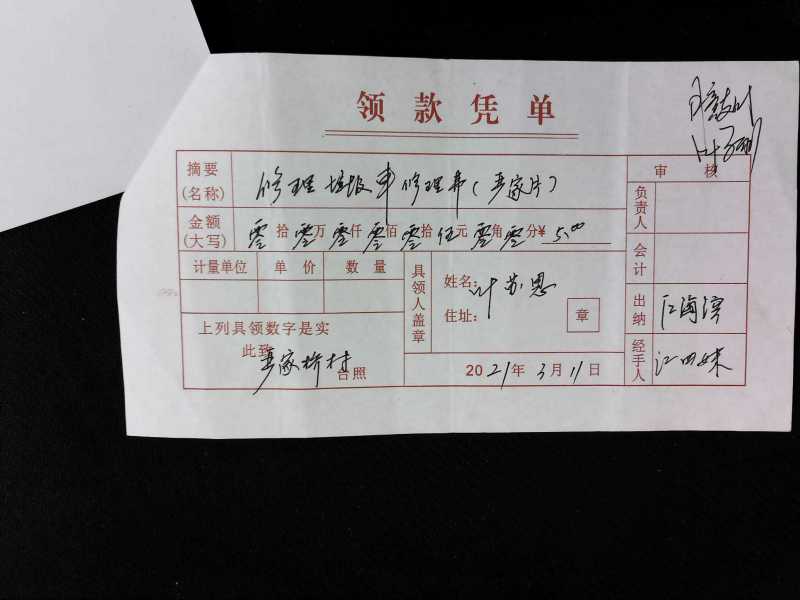 领款凭单
摘要(名称) 修理垃圾车修理费(严家片)
金额(大写) 零拾零万零仟零佰零拾伍元零角零分¥5.00
计量单位 单价 数量
上列具领数字是实
此致
严家桥村 台照
具领人盖章
姓名: 叶苏恩
住址: 章
2021年3月11日
审核
负责人
会计
出纳 江海滨
经手人 江四妹